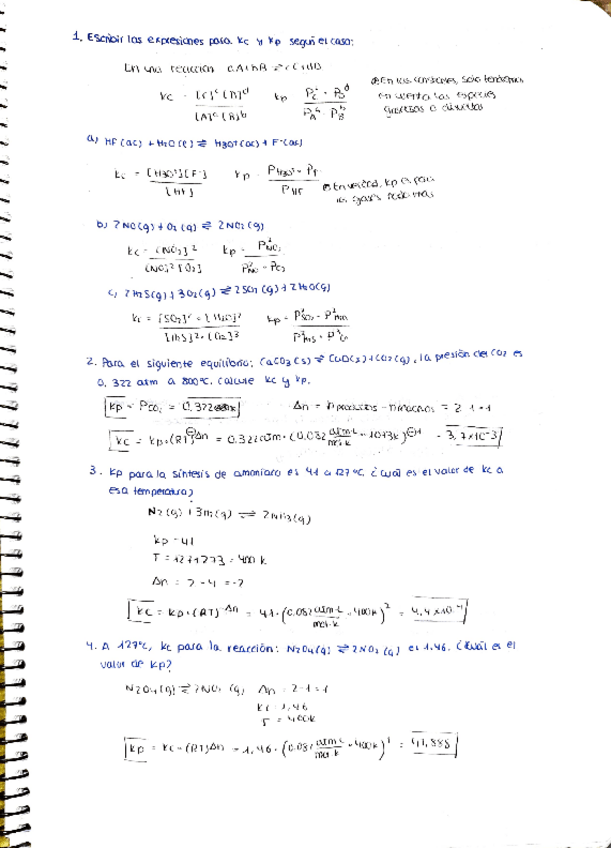 1. Escribir las expresiones para Kc y Kp según el caso:
En una reacción aA + bB ⇌ cC + dD
Kc = [C]^c [D]^d / [A]^a [B]^b   Kp = P_C^c · P_D^d / P_A^a · P_B^b   En las constantes, solo tendremos en cuenta las especies gaseosas o disueltas
a) HF(ac) + H2O(l) ⇌ H3O+(ac) + F-(ac)
Kc = [H3O+][F-] / [HF]   Kp = P_H3O+ · P_F- / P_HF   En verdad, Kp es para los gases
b) 2NO(g) + O2(g) ⇌ 2NO2(g)
Kc = [NO2]^2 / [NO]^2 [O2]   Kp = P^2_NO2 / P^2_NO · P_O2
c) 2H2S(g) + 3O2(g) ⇌ 2SO2(g) + 2H2O(g)
Kc = [SO2]^2 · [H2O]^2 / [H2S]^2 · [O2]^3   Kp = P^2_SO2 · P^2_H2O / P^2_H2S · P^3_O2
2. Para el siguiente equilibrio: CaCO3(s) ⇌ CaO(s) + CO2(g), la presión del CO2 es
0,322 atm a 800ºC. Calcule Kc y Kp.
Kp = P_CO2 = 0,322   Δn = nproductos - nreactivos = 2 - 1 = 1
Kc = Kp · (RT)^-Δn = 0,322 atm · (0,082 atm·L/mol·K · 1073K)^-1 = 3,7×10^-3
3. Kp para la síntesis de amoniaco es 41 a 127ºC. ¿Cuál es el valor de Kc a
esa temperatura?
N2(g) + 3H2(g) ⇌ 2NH3(g)
Kp = 41
T = 127 + 273 = 400 K
Δn = 2 - 4 = -2
Kc = Kp · (RT)^-Δn = 41 · (0,082 atm·L/mol·K · 400K)^2 = 4,4×10^4
4. A 127ºC, Kc para la reacción: N2O4(g) ⇌ 2NO2(g) es 1.46. ¿Cuál es el
valor de Kp?
N2O4(g) ⇌ 2NO2(g)   Δn = 2 - 1 = 1
Kc = 1,46
T = 400K
Kp = Kc · (RT)^Δn = 1,46 · (0,082 atm·L/mol·K · 400K)^1 = 47,888